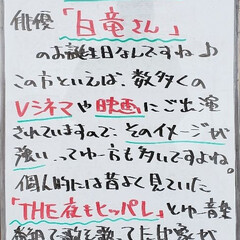 俳優「白竜さん」
のお誕生日なんですね♪
この方といえば、数多くの
Vシネマや映画にご出演
されていますので、そのイメージが
強いってゆー方も多いですよね。
個人的には昔よく見ていた
「THE夜もヒッパレ」とゆー音楽